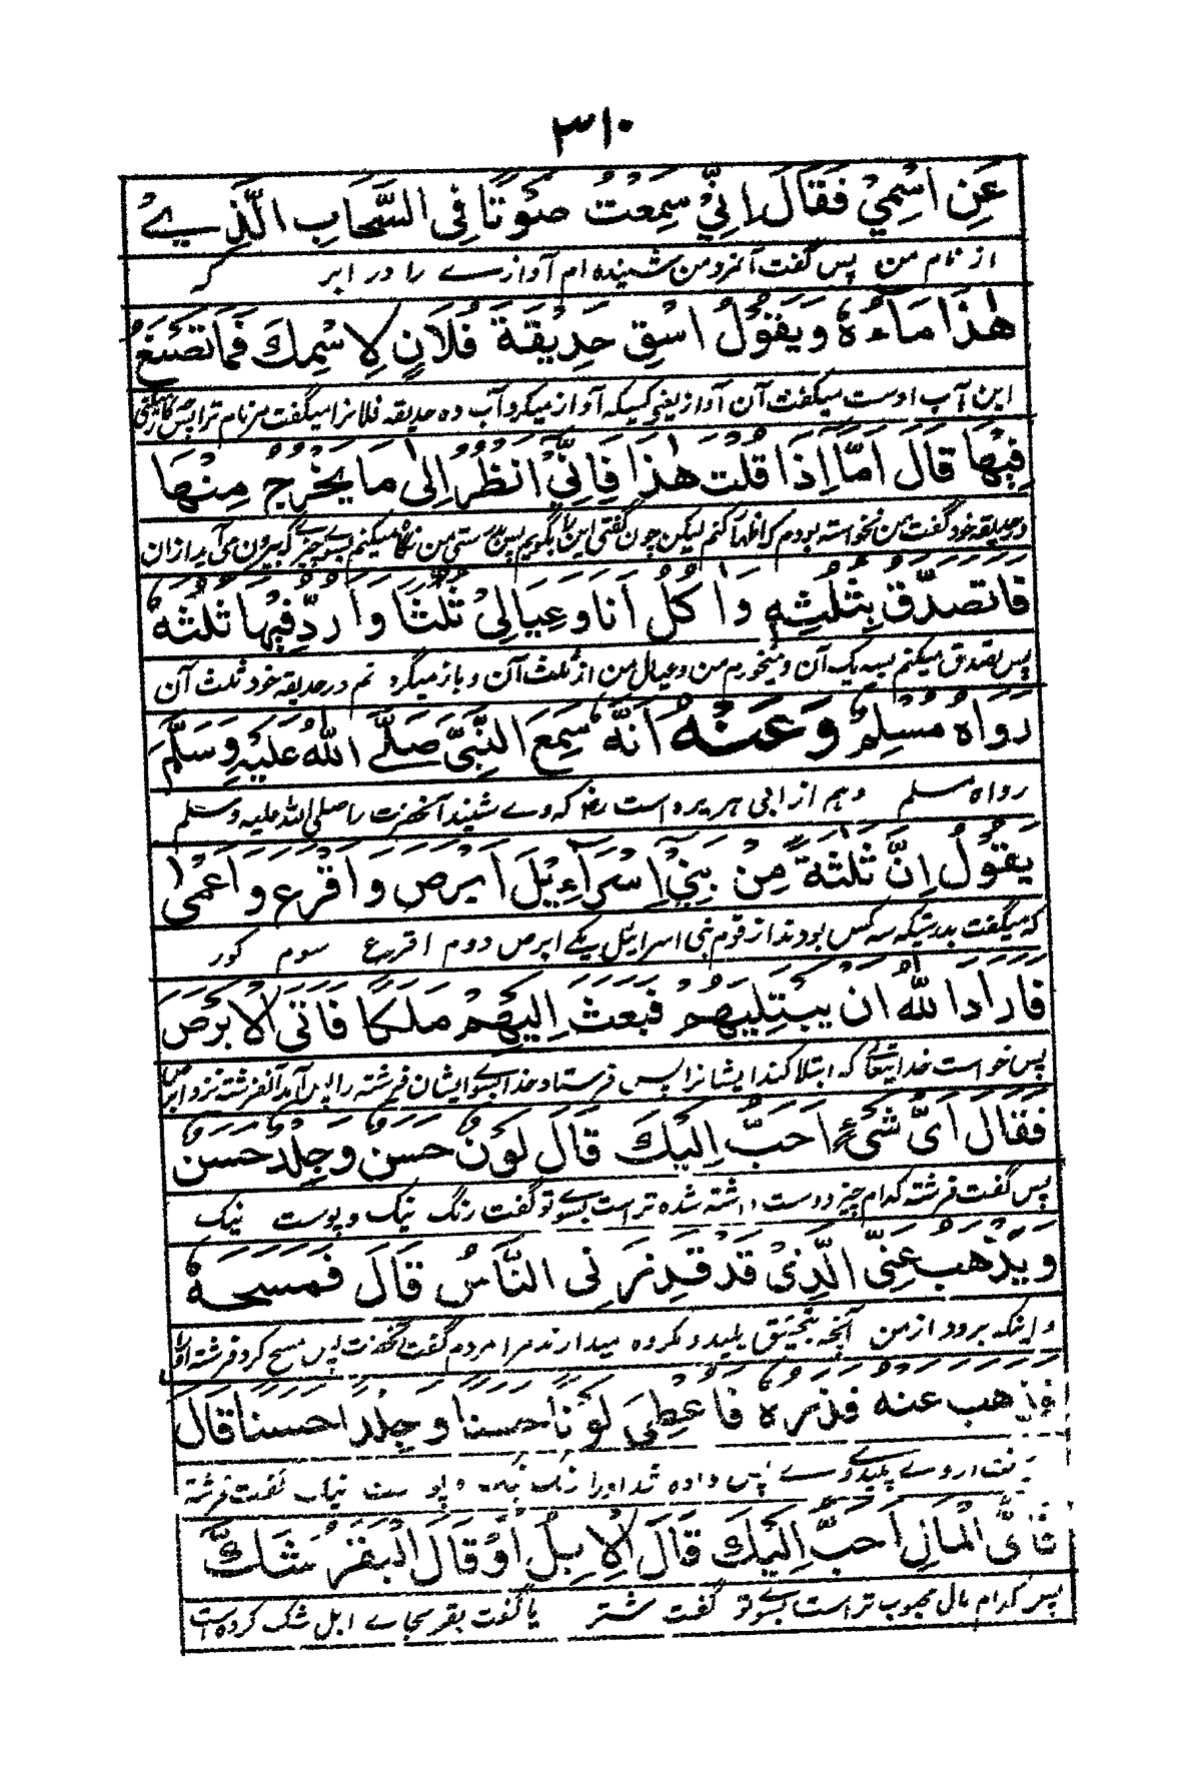 ۳۱۰
عَنِ اسْمِيْ فَقَالَ اِنِّيْ سَمِعْتُ صَوْتًا فِى السَّحَابِ الَّذِيْ
از نام من پس گفت آنمرد من شنیده ام آوازے را در ابر که
هٰذَا مَاءُهٗ وَيَقُوْلُ اسْقِ حَدِيْقَةَ فُلَانٍ لِاسْمِكَ فَمَا تَصْنَعُ
این آب اوست میگفت آن آواز یعنی کسیکه آواز میکرد آب ده حدیقه فلانرا میگفت مر نام ترا پس
فِيْهَا قَالَ اَمَّا اِذَا قُلْتَ هٰذَا فَاِنِّيْ اَنْظُرُ اِلٰى مَا يَخْرُجُ مِنْهَا
در حدیقه خود گفت من نخواسته بودم که اظهار کنم لیکن چون گفتی این را بگویم پس بدرستی من نگاه میکنم بسوے چیزے که بیرون می آید ازان
فَاَتَصَدَّقُ بِثُلُثِهٖ وَاٰكُلُ اَنَا وَعِيَالِيْ ثُلُثًا وَاَرُدُّ فِيْهَا ثُلُثَهٗ
پس تصدق میکنم بسه یک آن و میخورم من و عیال من از ثلث آن و باز میگردانم در حدیقه خود ثلث آن
رَوَاهُ مُسْلِمٌ وَعَنْهُ اَنَّهٗ سَمِعَ النَّبِىَّ صَلَّے اللهُ عَلَيْهِ وَسَلَّمَ
رواه مسلم وهم از ابی هریره است رضی که وے شنید آنحضرت را صلی الله علیه وسلم
يَقُوْلُ اِنَّ ثَلٰثَةً مِنْ بَنِيْ اِسْرَآءِيْلَ اَبْرَصَ وَاَقْرَعَ وَاَعْمٰى
که میگفت بدرستیکه سه کس بودند از قوم بنی اسرائیل یکے ابرص دوم اقرع سوم کور
فَاَرَادَ اللهُ اَنْ يَبْتَلِيَهُمْ فَبَعَثَ اِلَيْهِمْ مَلَكًا فَاَتَى الْاَبْرَصَ
پس خواست خدایتعالے که ابتلا کند ایشانرا پس فرستاد خدا بسوے ایشان فرشته را پس آمد آنفرشته نزد ابرص
فَقَالَ اَىُّ شَىْءٍ اَحَبُّ اِلَيْكَ قَالَ لَوْنٌ حَسَنٌ وَجِلْدٌ حَسَنٌ
پس گفت فرشته کدام چیز دوست داشته شده تر است بسوے تو گفت رنگ نیک و پوست نیک
وَيَذْهَبُ عَنِّى الَّذِىْ قَدْ قَذِرَنِى النَّاسُ قَالَ فَمَسَحَهٗ
و اینکه برود از من آنچه بتحقیق پلید و مکروه میدارند مرا مردم گفت آنحضرت پس مسح کرد فرشته اورا
فَذَهَبَ عَنْهُ قَذَرُهٗ فَاُعْطِىَ لَوْنًا حَسَنًا وَجِلْدًا حَسَنًا قَالَ
رفت ازوے پلیدی وے پس داده شد اورا رنگ نیک و پوست نیک گفت فرشته
فَاَىُّ الْمَالِ اَحَبُّ اِلَيْكَ قَالَ الْاِبِلُ اَوْ قَالَ الْبَقَرُ شَكَّ
پس کدام مال محبوب تر است بسوے تو گفت شتر یا گفت بقر بجاے ابل شک کرده است